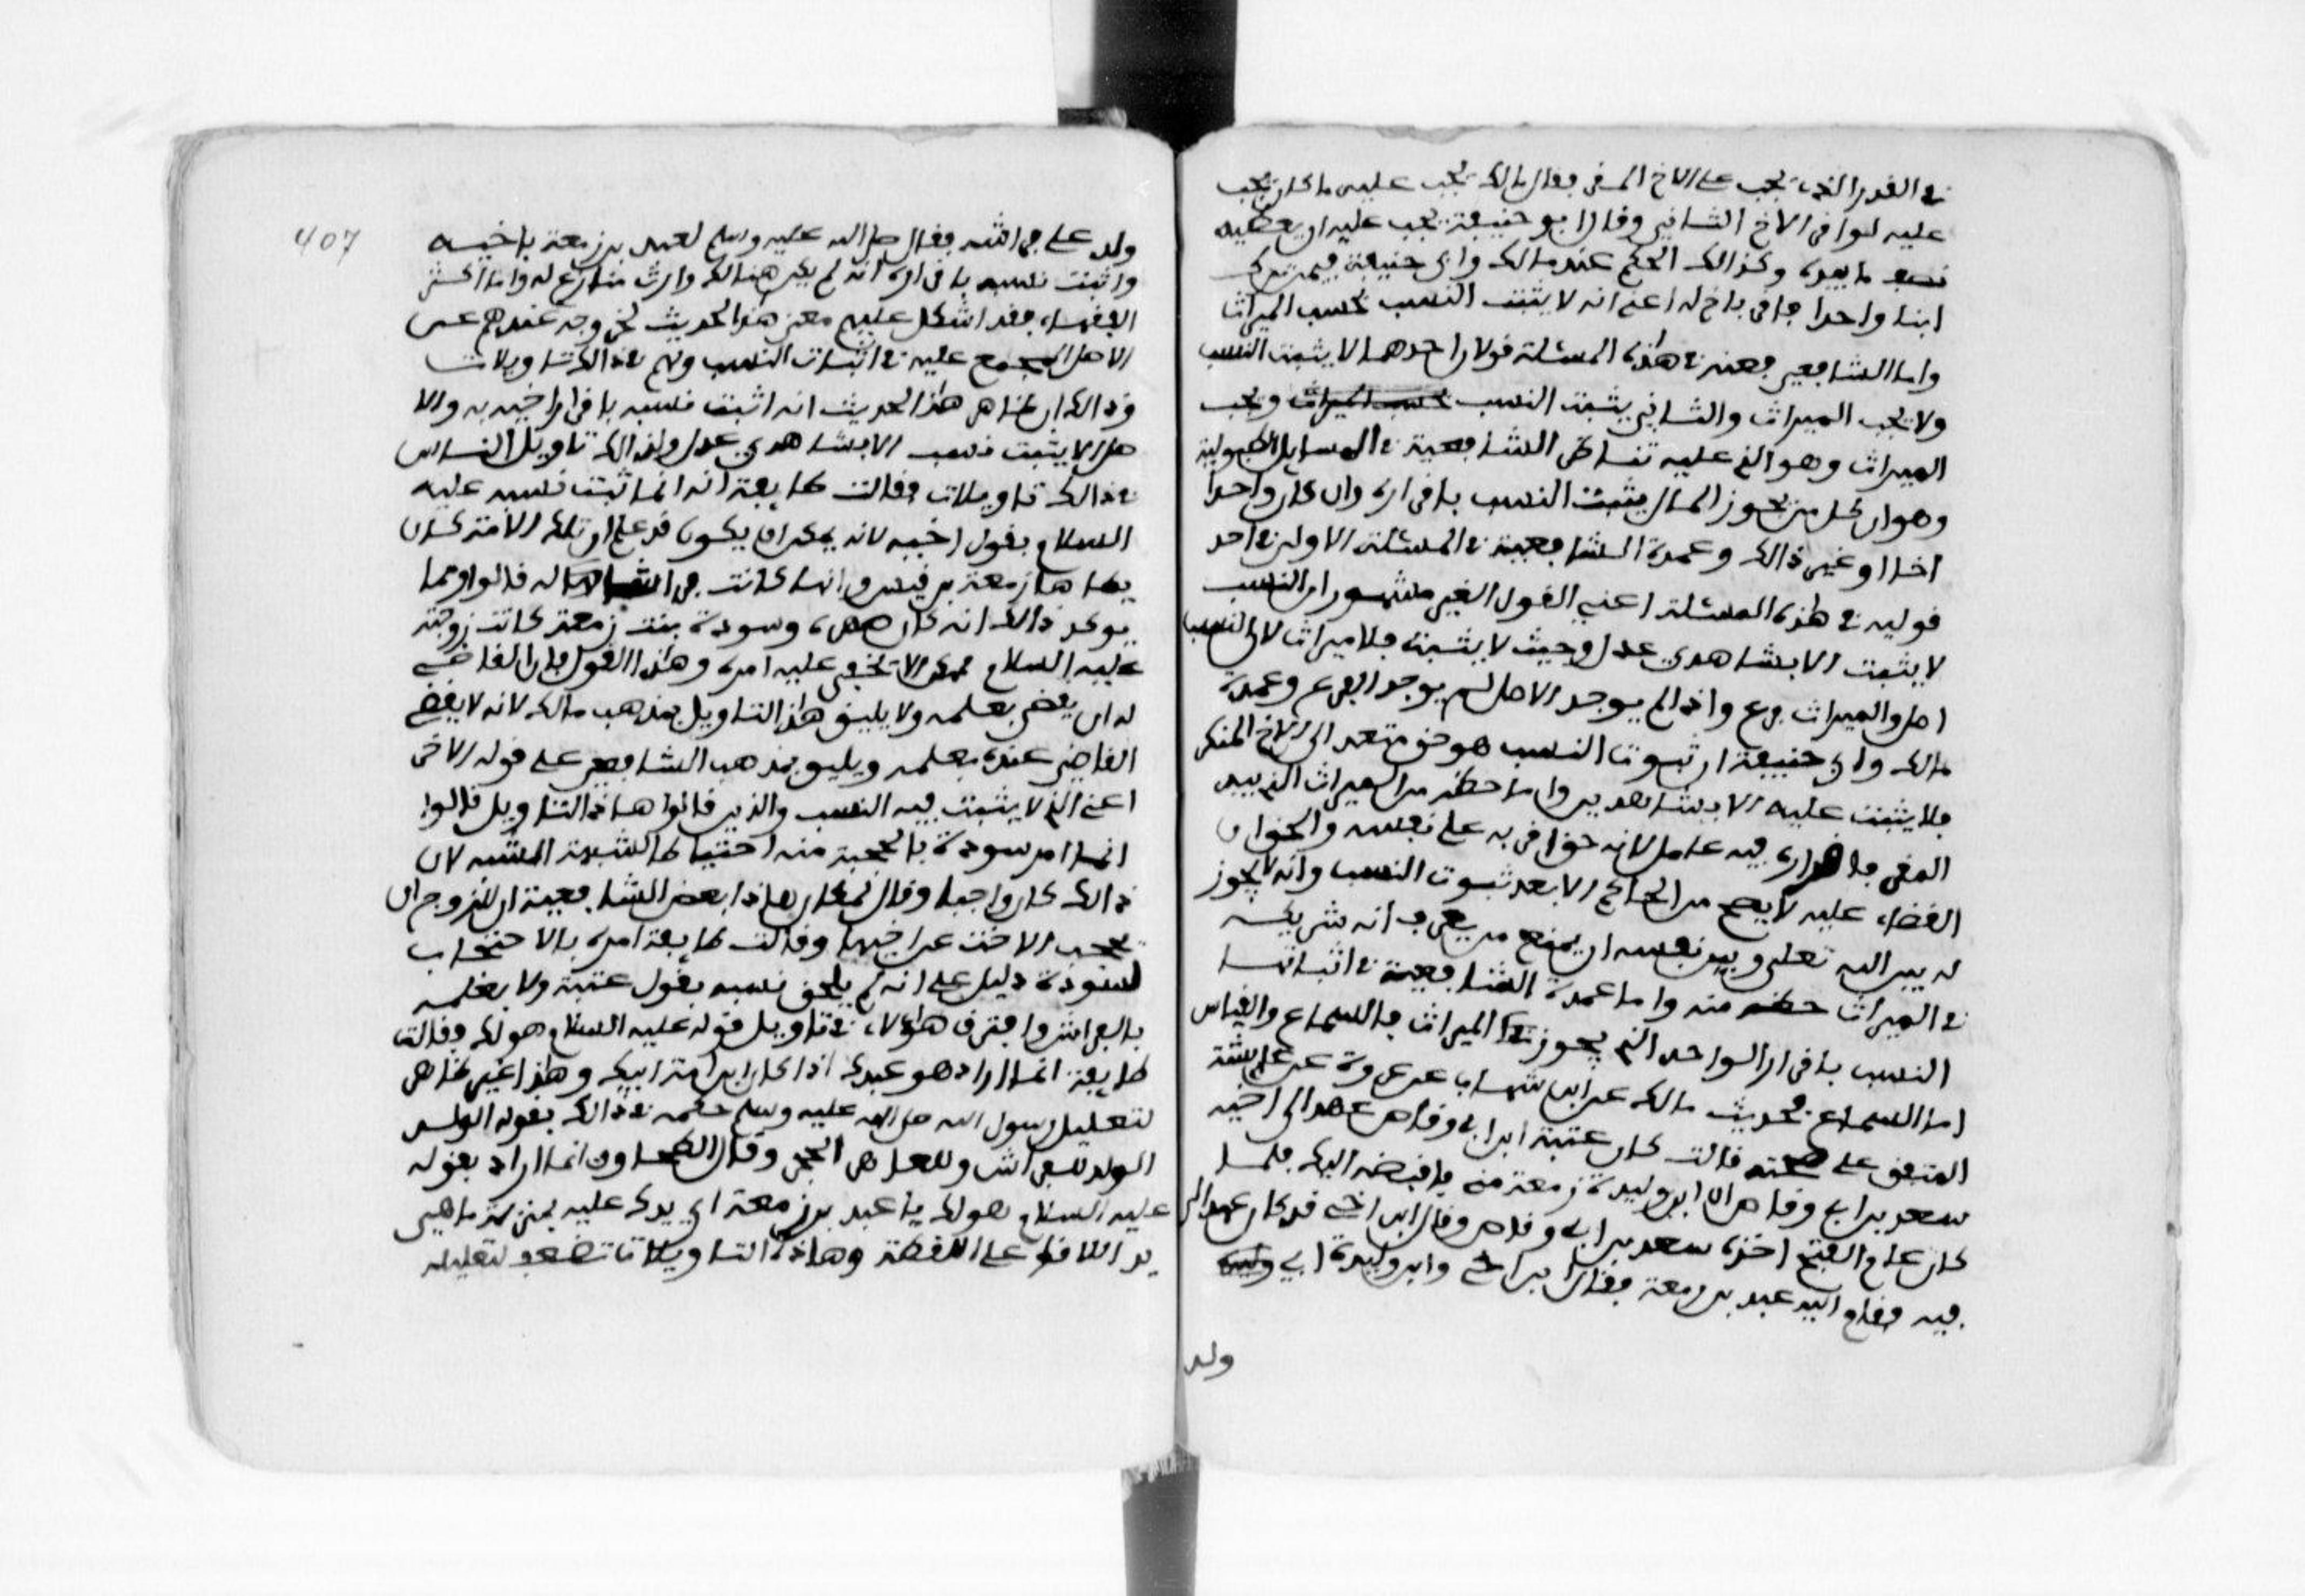 في القدر الذي يجب على الاخ المقر فقال مالك يجب عليه ما كان يجب
عليه لو اقر الاخ الثاني وقال ابو حنيفة يجب عليه ان يعطيه
نصف ما بيده وكذالك الحكم عند مالك وابي حنيفة فيمن ترك
ابنا واحدا فاقر باخ له اعني انه لا يثبت النسب ويجب الميراث
واما الشافعي فعنه في هذه المسئلة قولان احدهما لا يثبت النسب
ولا يجب الميراث والثاني يثبت النسب ويجب
الميراث وهو الذي عليه تناظر الشافعية في المسايل الطبولية
وهو ان كل من يحوز المال يثبت النسب باقراره وان كان واحدا
اخا او غير ذالك وعمدة الشافعية في المسئلة الاولى في احد
قوليه في هذه المسئلة اعني القول الغير مشهور ان النسب
لا يثبت الا بشاهدي عدل وحيث لا يثبته فلا ميراث لان النسب
اصل والميراث فرع واذا لم يوجد الاصل لم يوجد الفرع وعمدة
مالك وابي حنيفة ان ثبوت النسب هو حق متعد الى الاخ المنكر
فلا يثبت عليه الا بشاهدين واما حظه من الميراث الذي بيد
المقر فاقراره فيه عامل لانه حق اقر به على نفسه والحق ان
القضاء عليه لا يصح من الحاكم الا بعد ثبوت النسب وانه لا يجوز
له بين الله تعالى وبين نفسه ان يمنع من يعرف انه شريكه
في الميراث حظه منه واما عمدة الشافعية في اثباتها
النسب باقرار الواحد الذي يحوز له الميراث فالسماع والقياس
اما السماع فحديث مالك عن ابن شهاب عن عروة عن عايشة
المتفق على صحته قالت كان عتبة ابن ابي وقاص عهد الى اخيه
سعد بن ابي وقاص ان ابن وليدة زمعة مني فاقبضه اليك فلما
كان عام الفتح اخذه سعد بن ابي وقاص وقال ابن اخي قد كان عهد الي
فيه فقام اليه عبد بن زمعة فقال ابن اخي وابن وليدة ابي
ولد
407
ولد على فراشه فقال صلى الله عليه وسلم لعبد بن زمعة باخيه
واثبت نسبه باقراره اذ لم يكن هنالك وارث منازع له واما اكثر
الفقهاء فقد اشكل عليهم معنى هذا الحديث لخروجه عندهم عن
الاصل المجمع عليه في اثبات النسب ولهم في ذالك تاويلات
وذالك ان ظاهر هذا الحديث انه اثبت نسبه باقرار اخيه به والا
صل الا يثبت نسب الا بشاهدي عدل ولذالك تاويل الناس
في ذالك تاويلات وقالت طايفة انه انما اثبت نسبه عليه
السلام بقول اخيه لانه يمكن ان يكون قد علم ان تلك الامة كان
يطاها زمعة بن قيس وانها كانت فراشا له قالوا ومما
يوكد ذالك انه كان صهره وسودة بنت زمعة كانت زوجته
عليه السلام فيمكن الا يخفى عليه امره وهذا القول فان القاضي
له ان يقضي بعلمه ولا يليق هذا التاويل بمذهب مالك لانه لا يقضي
القاضي عنده بعلمه ويليق بمذهب الشافعي على قوله الاخر
اعني الذي لا يثبت فيه النسب والذين قالوا هاذا التاويل قالوا
انما امر سودة بالحجبة منه احتياطا لشبهة الشبه لان
ذالك كان واجبا وقال لمكان هاذا بعض الشافعية ان للزوج ان
يحجب الاخت عن اخيها وقالت طايفة امره بالاحتجاب
لسودة دليل على انه لم يلحق نسبه بقول عتبة ولا بعلمه
بالفراش وافترق هؤلاء في تاويل قوله عليه السلام هو لك فقالت
طايفة انما اراد هو عبدك اذا كان ابن امة ابيك وهذا غير ظاهر
لتعليل رسول الله صلى الله عليه وسلم حكمه في ذالك بقوله الولد
الولد للفراش وللعاهر الحجر وقال الطحاوي انما اراد بقوله
عليه السلام هو لك يا عبد بن زمعة اي يدك عليه بمنزلة ما هي
يد اللاقط على اللقطة وهاذه التاويلات تضعف لتعليله